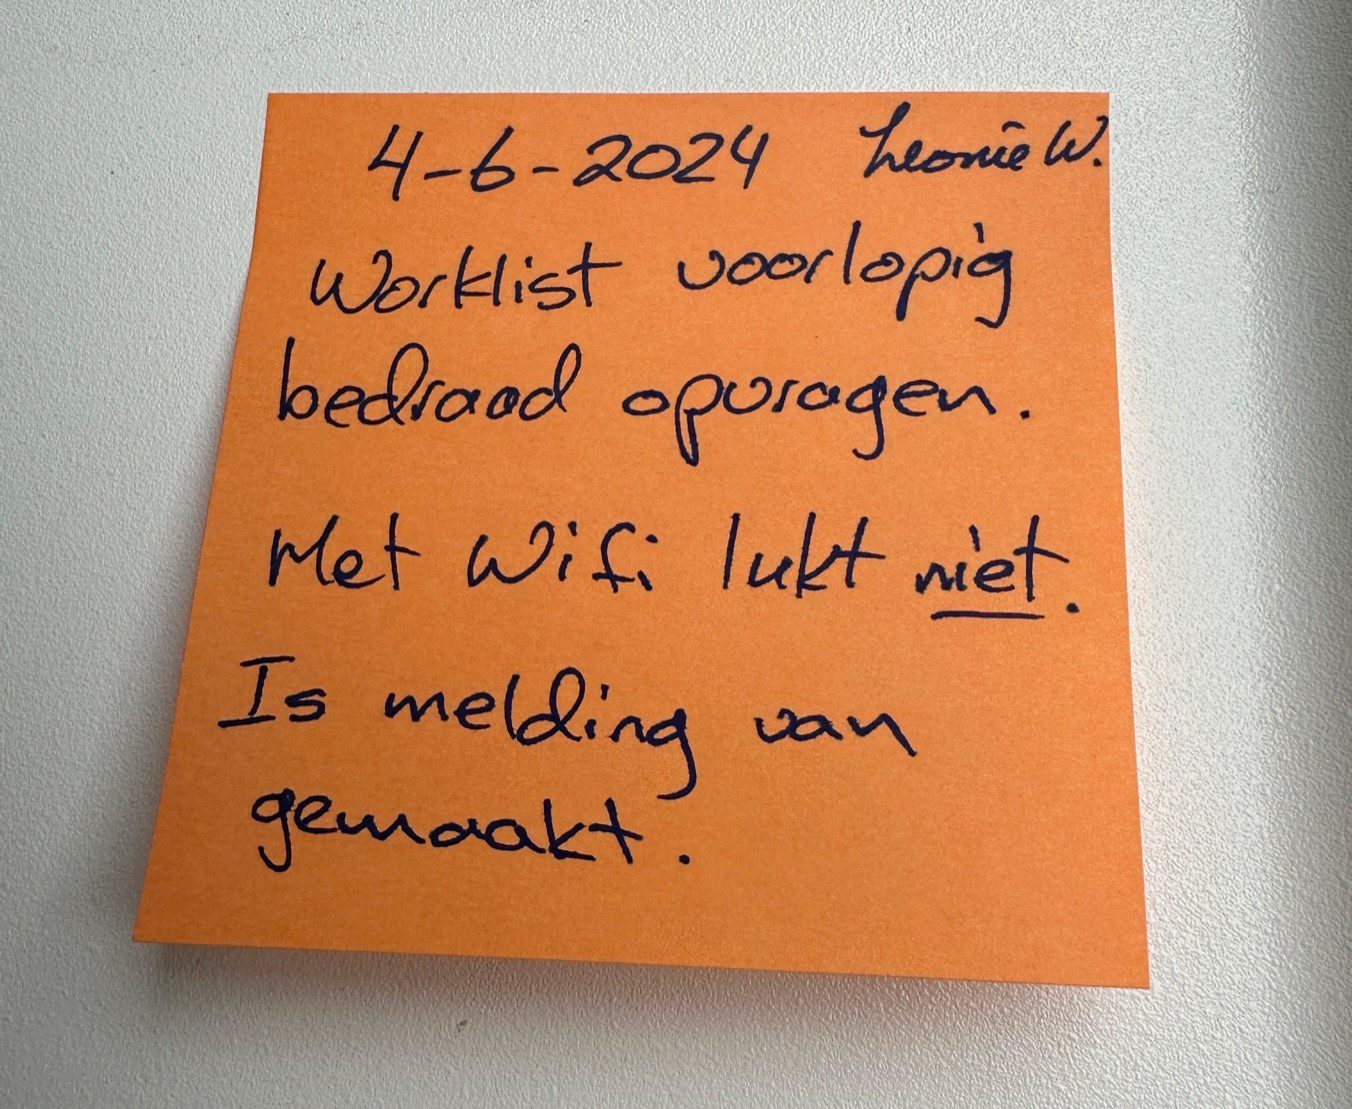 4-6-2024 Leonie W.
Worklist voorlopig
bedraad opvragen.
Met Wifi lukt niet.
Is melding van
gemaakt.